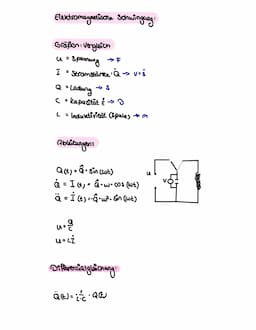 Elektromagnetische Schwingung:
Größen: Vergleich
U = Spannung → F
I = Stromstärke: Q̇ → v = ṡ
Q = Ladung → s
C = Kapazität → D
L = Induktivität (Spule) → m
Ableitungen:
Q(t) = Q̂ · sin(ωt)
Q̇ = I(t) = Q̂ · ω · cos(ωt)
Q̈ = İ(t) = -Q̂ · ω² · sin(ωt)
U = Q/C
U = L İ
U
V
Differentialgleichung:
Q̈(t) = 1/L·C · Q(t)